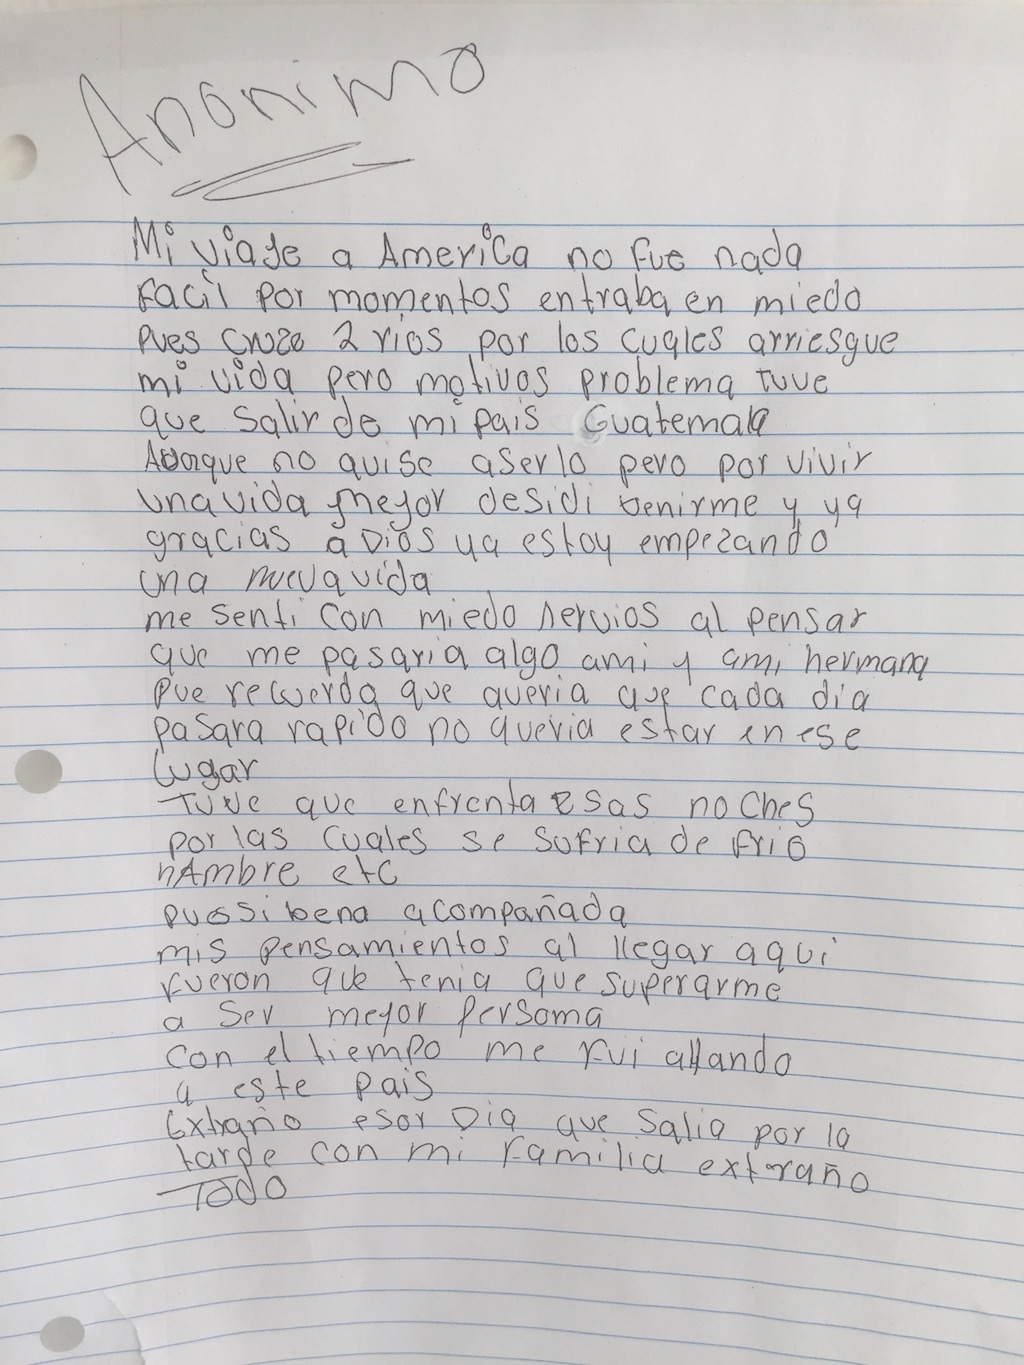 Anonimo
Mi viaje a America no fue nada
facil por momentos entraba en miedo
pues cruze 2 rios por los cuales arriesgue
mi vida pero motivos problema tuve
que salir de mi pais Guatemala
Aunque no quise aserlo pero por vivir
una vida mejor desidi benirme y ya
gracias a Dios ya estoy empezando
una nueva vida
me senti con miedo nervios al pensar
que me pasaria algo ami y ami hermana
pue recuerdo que queria que cada dia
pasara rapido no queria estar en ese
lugar
Tuve que enfrenta esas noches
por las cuales se sufria de frio
hAmbre etc
pues si bena acompañada
mis pensamientos al llegar aqui
fueron que tenia que superarme
a ser mejor persoma
con el tiempo me fui allando
a este pais
Extraño esor Dia que salia por la
tarde con mi familia extraño
Todo